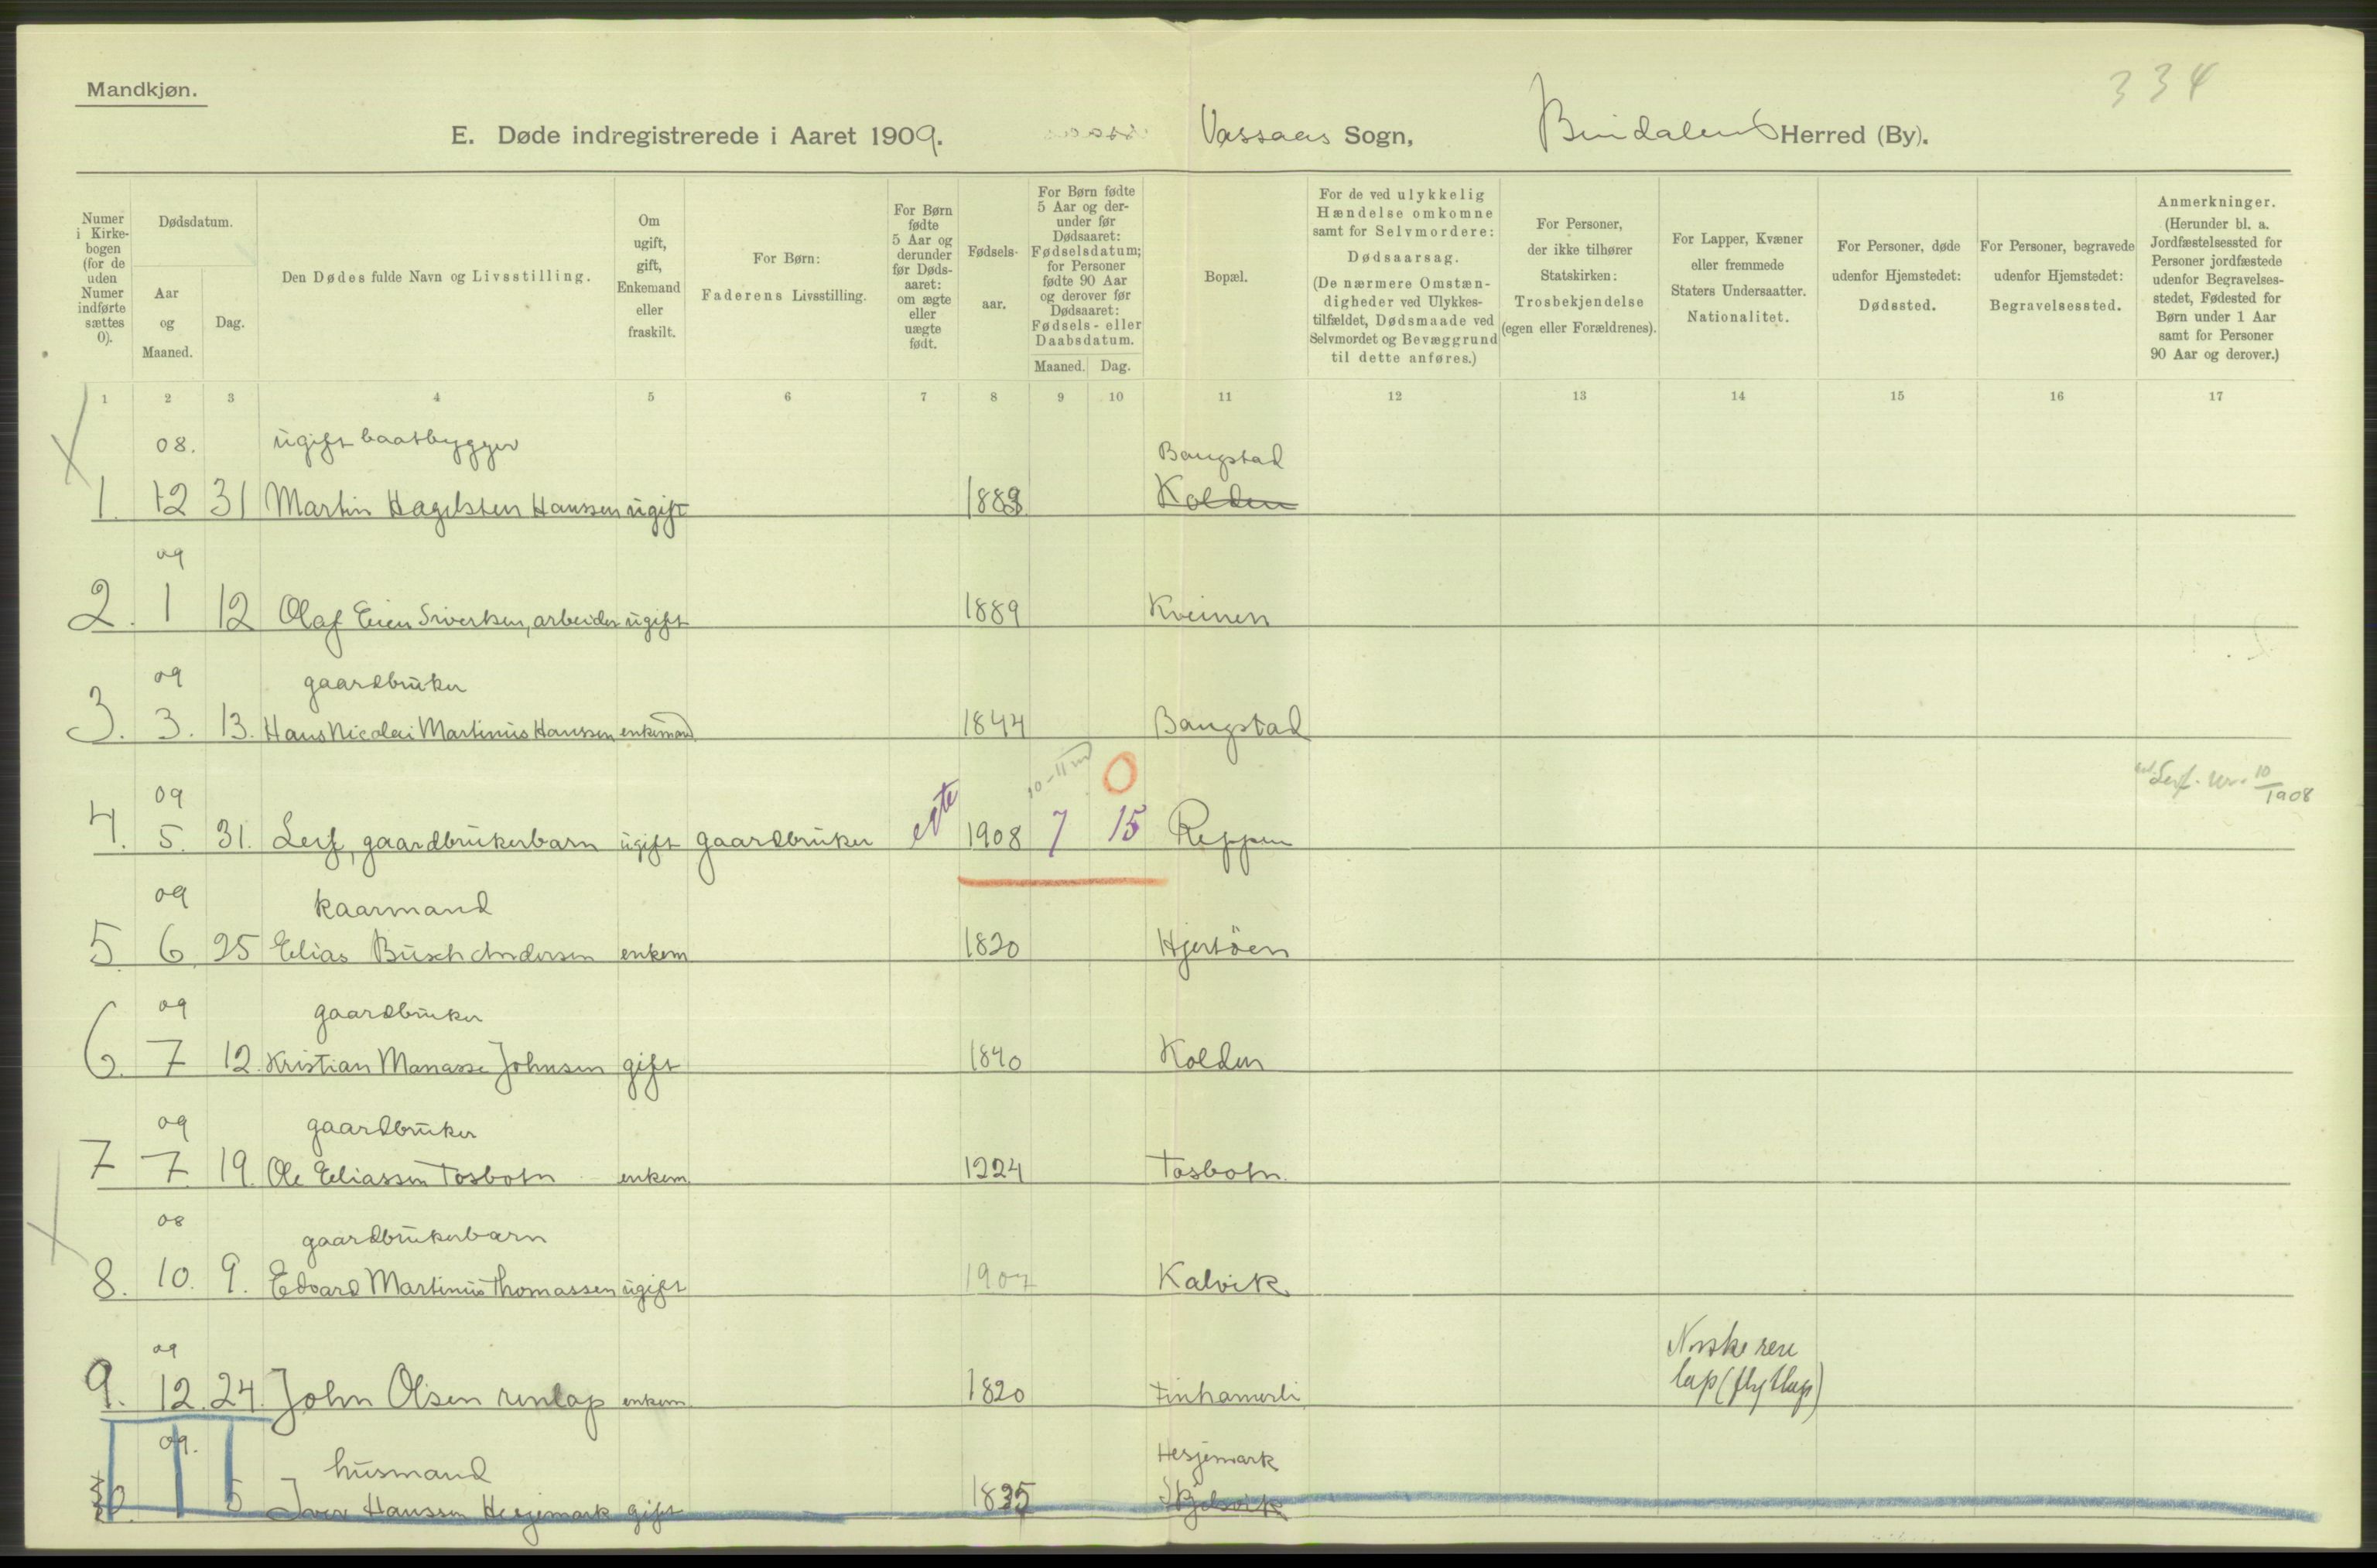 Mandkjøn.
334
E. Døde indregistrerede i Aaret 1909. Vassaas Sogn, Bindalens Herred (By).
Numer i Kirkebogen (for de uden Numer indførte sættes 0).
Dødsdatum.
Aar og Maaned.
Dag.
Den Dødes fulde Navn og Livsstilling.
Om ugift, gift, Enkemand eller fraskilt.
For Børn: Faderens Livsstilling.
For Børn fødte 5 Aar og derunder før Dødsaaret: om ægte eller uægte født.
Fødselsaar.
For Børn fødte 5 Aar og derunder før Dødsaaret: Fødselsdatum; for Personer fødte 90 Aar og derover før Dødsaaret: Fødsels- eller Daabsdatum.
Maaned. Dag.
Bopæl.
For de ved ulykkelig Hændelse omkomne samt for Selvmordere: Dødsaarsag. (De nærmere Omstændigheder ved Ulykkestilfældet, Dødsmaade ved Selvmordet og Bevæggrund til dette anføres.)
For Personer, der ikke tilhører Statskirken: Trosbekjendelse (egen eller Forældrenes).
For Lapper, Kvæner eller fremmede Staters Undersaatter. Nationalitet.
For Personer, døde udenfor Hjemstedet: Dødssted.
For Personer, begravede udenfor Hjemstedet: Begravelsessted.
Anmerkninger. (Herunder bl. a. Jordfæstelsessted for Personer jordfæstede udenfor Begravelsesstedet, Fødested for Børn under 1 Aar samt for Personer 90 Aar og derover.)
1 2 3 4 5 6 7 8 9 10 11 12 13 14 15 16 17
08. ugift baatbygger Bangstad
1. 12 31 Martin Hagelsten Hanssen ugift 1889 Kolden
09
2. 1 12 Olaf Eien Siversen, arbeider ugift 1889 Kveinen
09 gaardbruker
3. 3. 13. Hans Nicolai Martinus Hanssen enkemand 1844 Bangstad
09 10-11 md 0 Leif. nr. 10/1908
4. 5. 31. Leif, gaardbrukerbarn ugift gaardbruker egte 1908 7 15 Reppen
09 kaarmand
5. 6. 25 Elias Busch Andersen enkem 1820 Hjertöen
09 gaardbruker
6. 7 12. Kristian Manasse Johnsen gift 1840 Kolden
09 gaardbruker
7 7 19. Ole Eliassen Tosbotn enkem 1824 Tosbotn.
08 gaardbrukerbarn
8. 10. 9. Edvard Martinus Thomassen ugift 1907 Kalvik
09 Norske ren
9. 12. 24. John Olsen renlap enkem. 1820 Finhamerli lap (flytlap)
09. husmand Hesjemark
10. 1 5 Iver Hanssen Hesjemark gift 1835